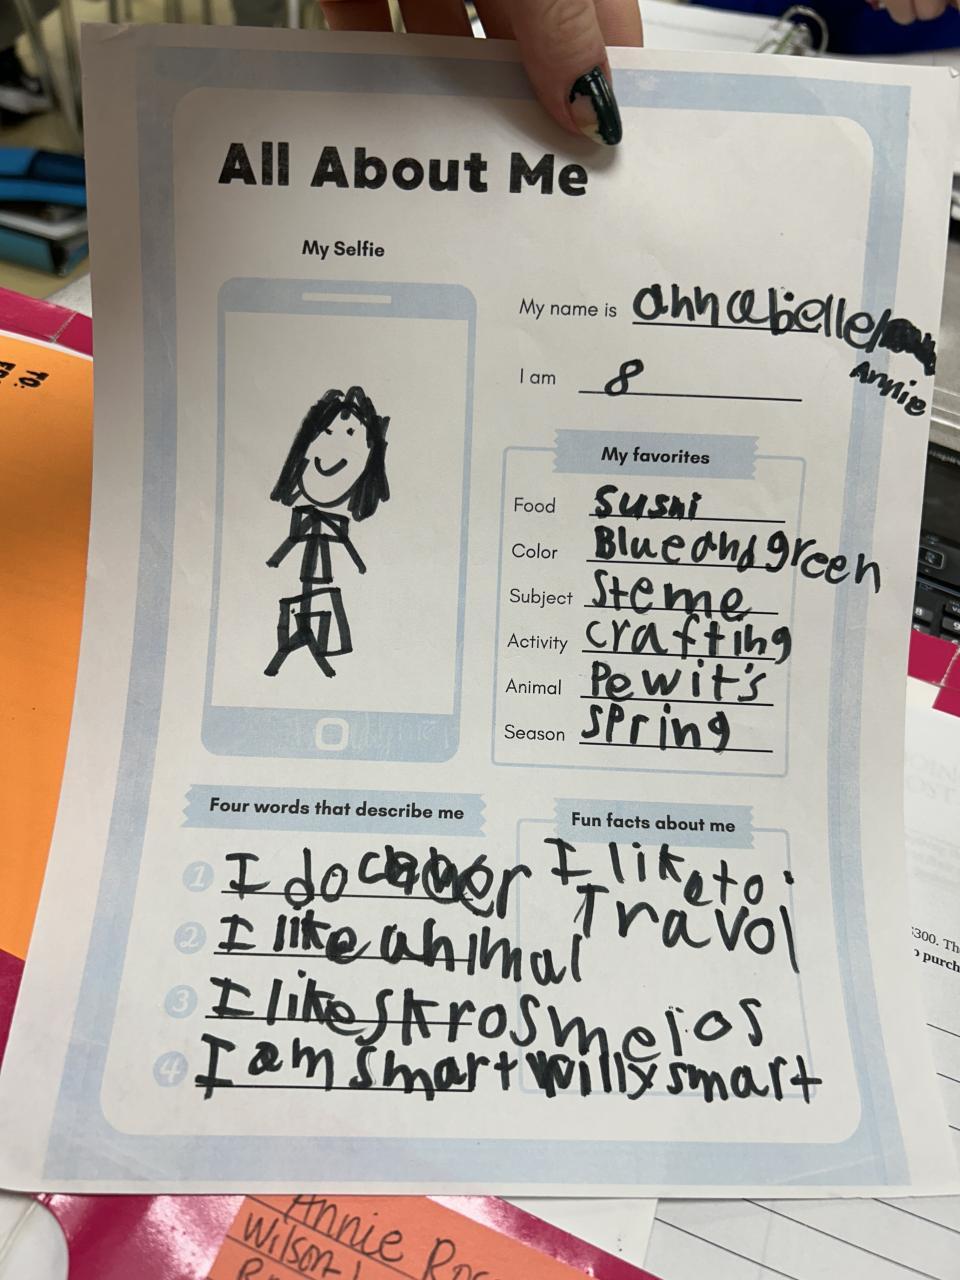 All About Me
My Selfie
My name is annabelle/
Annie
I am 8
My favorites
Food sushi
Color Blue and green
Subject Steme
Activity crafting
Animal Pewit's
Season spring
Four words that describe me
1 I do
2 I like animal
3 I like
4 I am smart willy smart
Fun facts about me
I like to
Travol
TO:
300. Th
purch
Annie Ros
Wilson